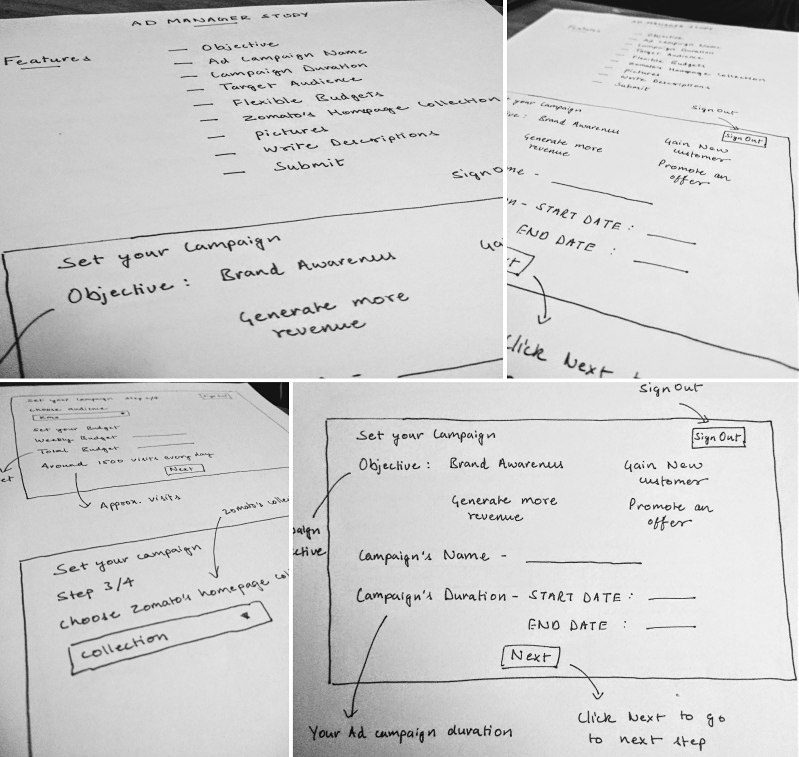 AD MANAGER STUDY
Features
— Objective
— Ad Campaign Name
— Campaign Duration
— Target Audience
— Flexible Budgets
— Zomato's Homepage Collection
— pictures
— Write Descriptions
— Submit
Sign O
Set your Campaign
Objective : Brand Awareness
Generate more
revenue
AD MANAGER STUDY
Features
— Objective
— Ad Campaign Name
— Campaign Duration
— Target Audience
— Flexible Budgets
— Zomato's Homepage Collection
— Pictures
— Write Descriptions
— Submit
Sign Out
Sign Out
your Campaign
Brand Awareness
Gain New
customer
Generate more
revenue
Promote an
offer
START DATE :
END DATE :
Click Next t
Set your Campaign Step 2/4
Choose Audience
Set your Budget
Weekly Budget
Total Budget
Around 1500 visits every day
Next
Approx. visits
Zomato's colle
Set your campaign
Step 3/4
Choose Zomato's homepage col
collection
Sign Out
Sign Out
Set your Campaign
Objective : Brand Awareness
Gain New
customer
Generate more
revenue
Promote an
offer
Campaign's Name -
Campaign's Duration - START DATE :
END DATE :
Next
Your Ad campaign duration
Click Next to go
to next step